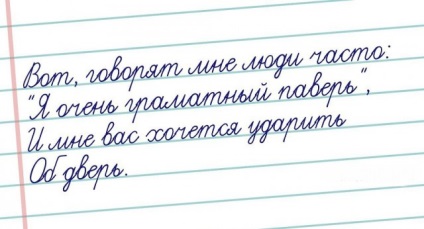 Вот, говорят мне люди часто:
"Я очень граматный паверь",
И мне вас хочется ударить
Об дверь.